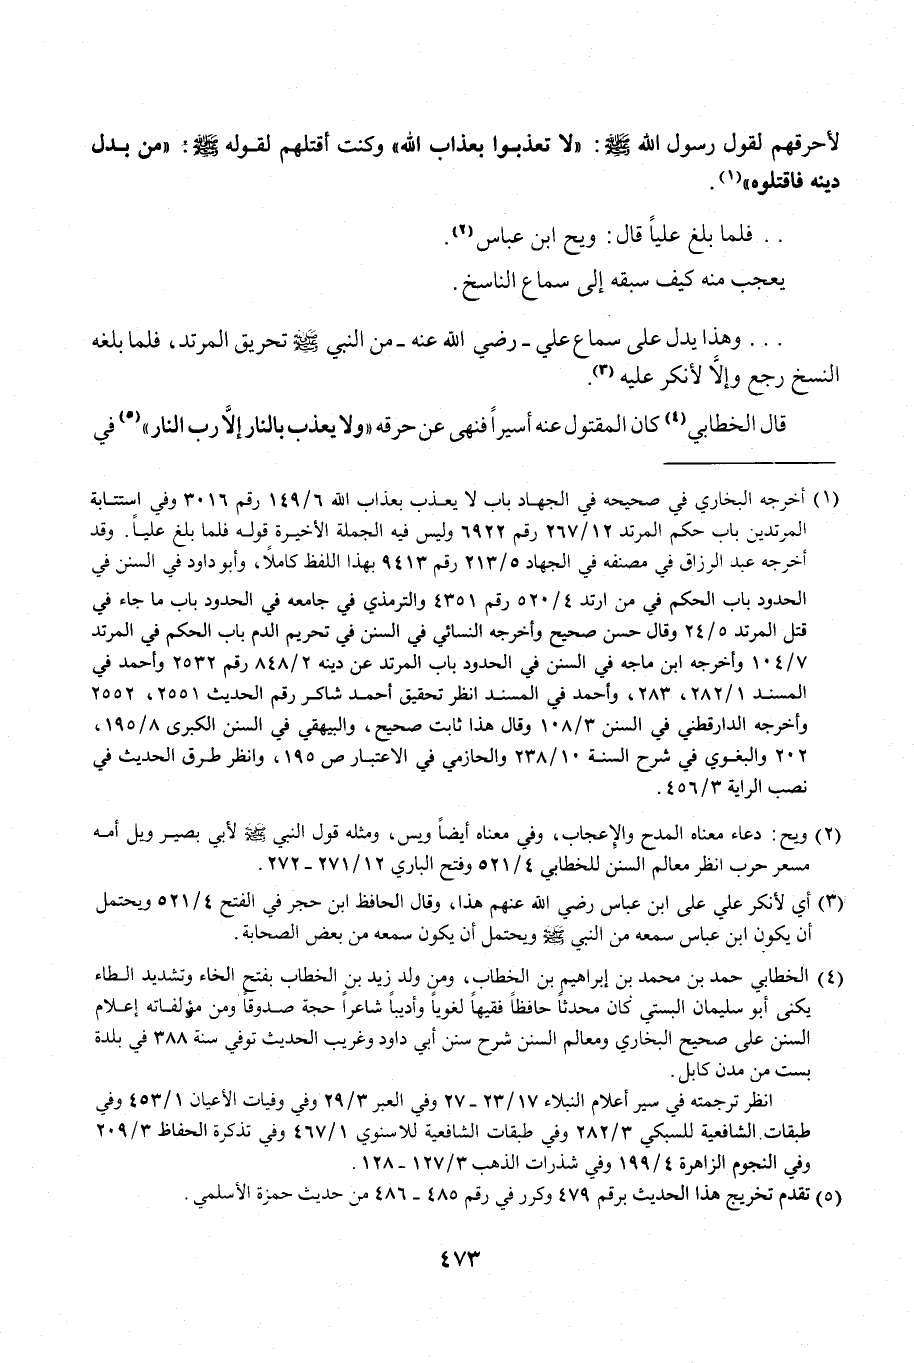 لأحرقهم لقول رسول الله ﷺ: «لا تعذبوا بعذاب الله» وكنت أقتلهم لقوله ﷺ: «من بدل
دينه فاقتلوه»(١).
. . فلما بلغ علياً قال: ويح ابن عباس(٢).
يعجب منه كيف سبقه إلى سماع الناسخ.
. . . وهذا يدل على سماع علي ـ رضي الله عنه ـ من النبي ﷺ تحريق المرتد، فلما بلغه
النسخ رجع وإلَّا لأنكر عليه (٣).
قال الخطابي(٤) كان المقتول عنه أسيراً فنهى عن حرقه «ولا يعذب بالنار إلَّا رب النار»(٥) في
(١) أخرجه البخاري في صحيحه في الجهاد باب لا يعذب بعذاب الله ١٤٩/٦ رقم ٣٠١٦ وفي استتابة
المرتدين باب حكم المرتد ٢٦٧/١٢ رقم ٦٩٢٢ وليس فيه الجملة الأخيرة قوله فلما بلغ علياً. وقد
أخرجه عبد الرزاق في مصنفه في الجهاد ٢١٣/٥ رقم ٩٤١٣ بهذا اللفظ كاملاً، وأبو داود في السنن في
الحدود باب الحكم في من ارتد ٥٢٠/٤ رقم ٤٣٥١ والترمذي في جامعه في الحدود باب ما جاء في
قتل المرتد ٢٤/٥ وقال حسن صحيح وأخرجه النسائي في السنن في تحريم الدم باب الحكم في المرتد
١٠٤/٧ وأخرجه ابن ماجه في السنن في الحدود باب المرتد عن دينه ٨٤٨/٢ رقم ٢٥٣٢ وأحمد في
المسند ٢٨٢/١، ٢٨٣، وأحمد في المسند انظر تحقيق أحمد شاكر رقم الحديث ٢٥٥١، ٢٥٥٢
وأخرجه الدارقطني في السنن ١٠٨/٣ وقال هذا ثابت صحيح، والبيهقي في السنن الكبرى ١٩٥/٨،
٢٠٢ والبغوي في شرح السنة ٢٣٨/١٠ والحازمي في الاعتبار ص ١٩٥، وانظر طرق الحديث في
نصب الراية ٤٥٦/٣.
(٢) ويح: دعاء معناه المدح والإعجاب، وفي معناه أيضاً ويس، ومثله قول النبي ﷺ لأبي بصير ويل أمه
مسعر حرب انظر معالم السنن للخطابي ٥٢١/٤ وفتح الباري ٢٧١/١٢ ـ ٢٧٢.
(٣) أي لأنكر علي على ابن عباس رضي الله عنهم هذا، وقال الحافظ ابن حجر في الفتح ٥٢١/٤ ويحتمل
أن يكون ابن عباس سمعه من النبي ﷺ ويحتمل أن يكون سمعه من بعض الصحابة.
(٤) الخطابي حمد بن محمد بن إبراهيم بن الخطاب، ومن ولد زيد بن الخطاب بفتح الخاء وتشديد الطاء
يكنى أبو سليمان البستي كان محدثاً حافظاً فقيهاً لغوياً وأديباً شاعراً حجة صدوقاً ومن مؤلفاته إعلام
السنن على صحيح البخاري ومعالم السنن شرح سنن أبي داود وغريب الحديث توفي سنة ٣٨٨ في بلدة
بست من مدن كابل.
انظر ترجمته في سير أعلام النبلاء ٢٣/١٧ ـ ٢٧ وفي العبر ٢٩/٣ وفي وفيات الأعيان ٤٥٣/١ وفي
طبقات الشافعية للسبكي ٢٨٢/٣ وفي طبقات الشافعية للاسنوي ٤٦٧/١ وفي تذكرة الحفاظ ٢٠٩/٣
وفي النجوم الزاهرة ١٩٩/٤ وفي شذرات الذهب ١٢٧/٣ ـ ١٢٨.
(٥) تقدم تخريج هذا الحديث برقم ٤٧٩ وكرر في رقم ٤٨٥ ـ ٤٨٦ من حديث حمزة الأسلمي.
٤٧٣